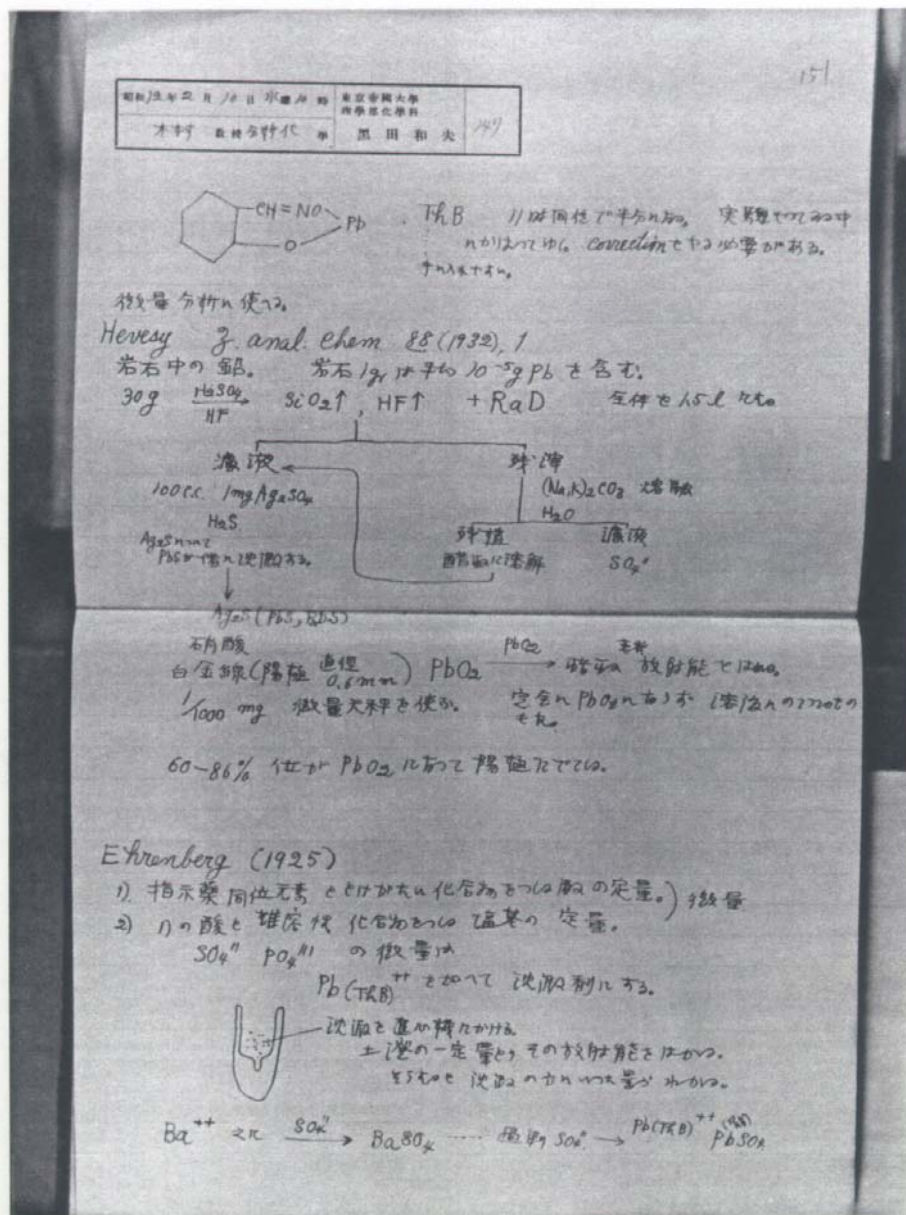 151
昭和12年2月10日 水曜10時 東京帝國大學 理學部化學科
木村 教授 分析化學 黒田和夫 147
CH=NO Pb ThB 11時間位で半分になる。実験やってゐる中
O にかはってゆく。correctionをやる必要がある。
手に入れやすい。
微量分析に使へる。
Hevesy Z. anal. Chem 88 (1932), 1
岩石中の鉛。 岩石1grは平均10⁻⁵g Pbを含む。
30g H₂SO₄ HF → SiO₂↑, HF↑ + RaD 全体を1.5lにする。
濾液 残渣
100cc. 1mg Ag₂SO₄ (Na,K)₂CO₃ 熔融
H₂S H₂O
残渣 濾液
Ag₂Sについて
PbSが倶に沈澱する。 醋酸に溶解 SO₄''
Ag₂S (PbS, RaDS)
硝酸
白金線(陽極 直径 0.6mm) PbO₂ PbO₂ → 醋酸 放射能をはかる。
1/1000 mg 微量天秤を使ふ。 完全にPbO₂にならず 溶液に
60-86%位がPbO₂になって陽極にでてくる。
Ehrenberg (1925)
1) 指示薬同位元素ととけがたい化合物をつくる酸の定量。 微量
2) 1)の酸と難溶性化合物をつくる塩基の定量。
SO₄'' PO₄''' の微量は
Pb(ThB)⁺⁺を加へて沈澱剤にする。
沈澱を遠心機にかける。
上澄の一定量とりその放射能をはかる。
そうすると沈澱の方にいった量がわかる。
Ba⁺⁺ 之に SO₄'' → BaSO₄ ‥‥ 過剰SO₄'' → Pb(ThB)⁺⁺ (ThB) PbSO₄